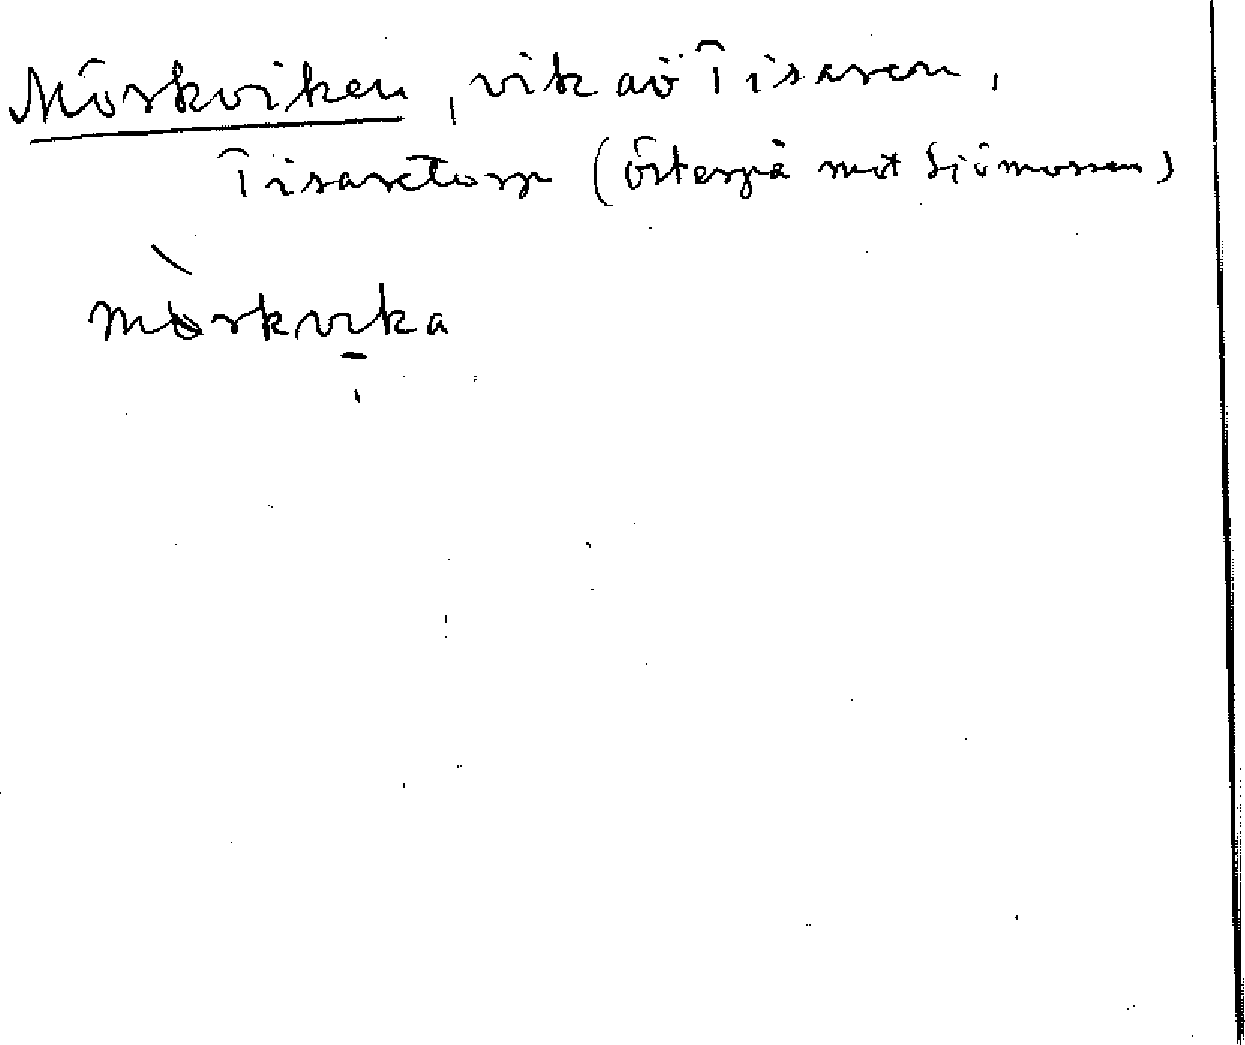 Mörkviken, vik av Tisaren,
Tisartorp (österpå mot Sjömossen)
mörkvika